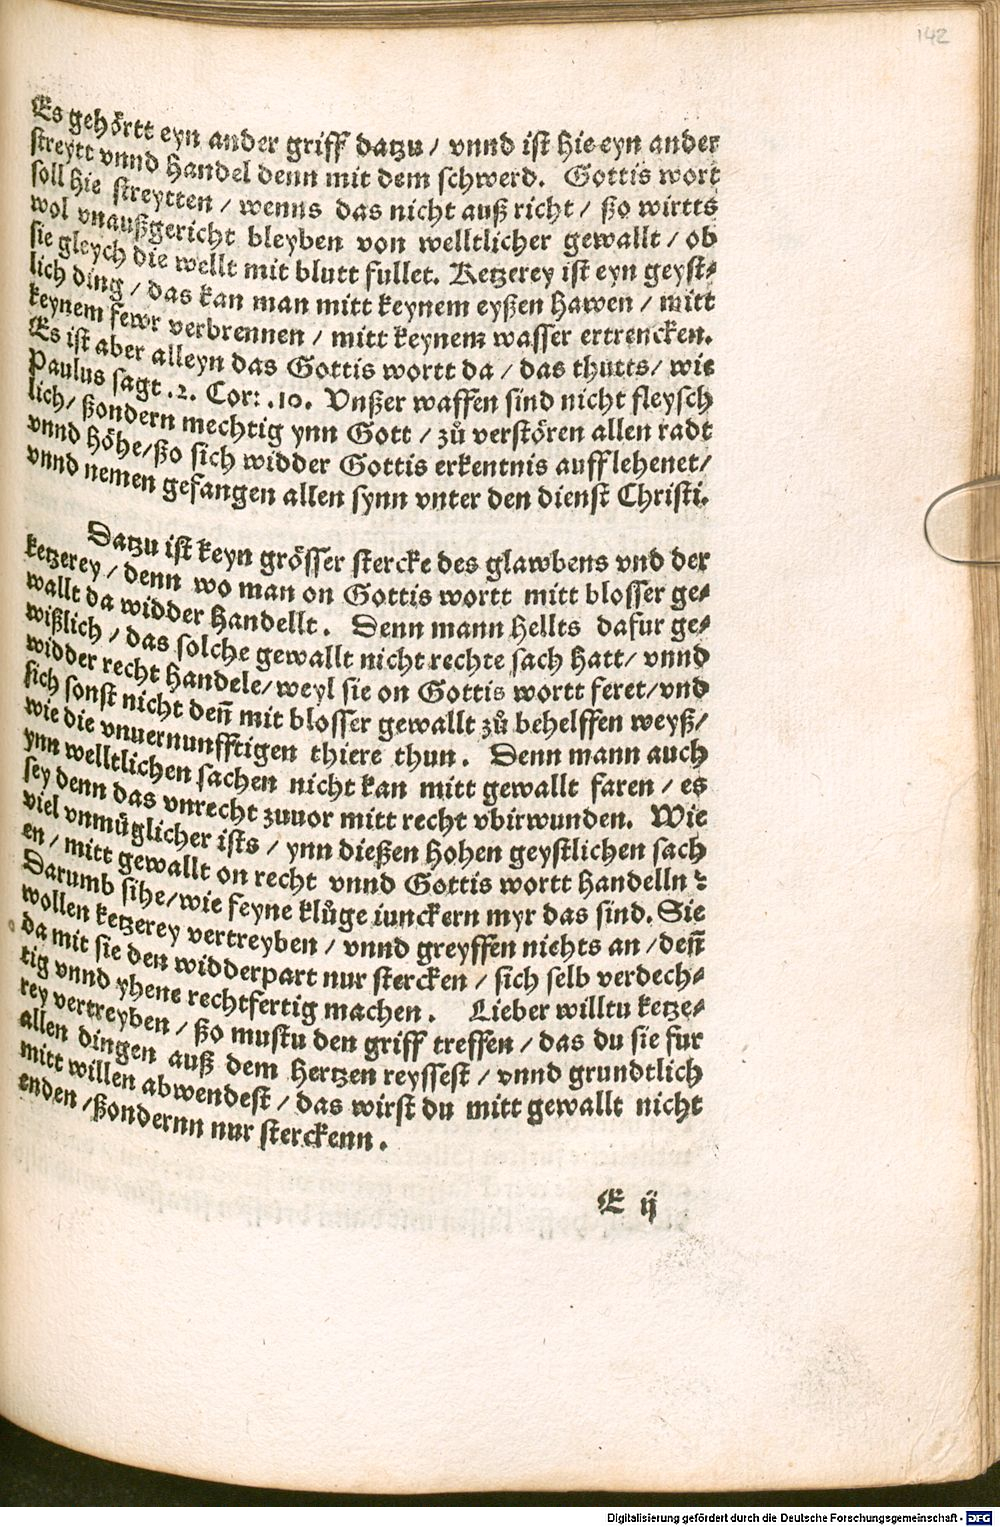 142
Es gehörtt eyn ander griff datzu / vnnd ist hie eyn ander
streytt vnnd handel denn mit dem schwerd. Gottis wort
soll hie streytten / wenns das nicht auß richt / ßo wirtts
wol vnaußgericht bleyben von welltlicher gewallt / ob
sie gleych die wellt mit blutt fullet. Ketzerey ist eyn geyst⸗
lich ding / das kan man mitt keynem eyßen hawen / mitt
keynem fewr verbrennen / mitt keynem wasser ertrencken.
Es ist aber alleyn das Gottis wortt da / das thutts / wie
Paulus sagt .2. Cor: .10. Vnßer waffen sind nicht fleysch
lich / ßondern mechtig ynn Gott / zů verstören allen radt
vnnd höhe / ßo sich widder Gottis erkentnis aufflehenet /
vnnd nemen gefangen allen synn vnter den dienst Christi.
Datzu ist keyn grösser stercke des glawbens vnd der
ketzerey / denn wo man on Gottis wortt mitt blosser ge⸗
wallt da widder handellt. Denn mann hellts dafur ge⸗
wißlich / das solche gewallt nicht rechte sach hatt / vnnd
widder recht handele / weyl sie on Gottis wortt feret / vnd
sich sonst nicht deñ mit blosser gewallt zů behelffen weyß /
wie die vnuernunfftigen thiere thun. Denn mann auch
ynn welltlichen sachen nicht kan mitt gewallt faren / es
sey denn das vnrecht zuuor mitt recht vbirwunden. Wie
viel vnmüglicher ists / ynn dießen hohen geystlichen sach
en / mitt gewallt on recht vnnd Gottis wortt handelln ?
Darumb sihe / wie feyne klůge iunckern myr das sind. Sie
wollen ketzerey vertreyben / vnnd greyffen nichts an / deñ
da mit sie den widderpart nur stercken / sich selb verdech⸗
tig vnnd yhene rechtfertig machen. Lieber willtu ketze⸗
rey vertreyben / ßo mustu den griff treffen / das du sie fur
allen dingen auß dem hertzen reyssest / vnnd grundtlich
mitt willen abwendest / das wirst du mitt gewallt nicht
enden / ßondernn nur sterckenn.
E ij
Digitalisierung gefördert durch die Deutsche Forschungsgemeinschaft - DFG